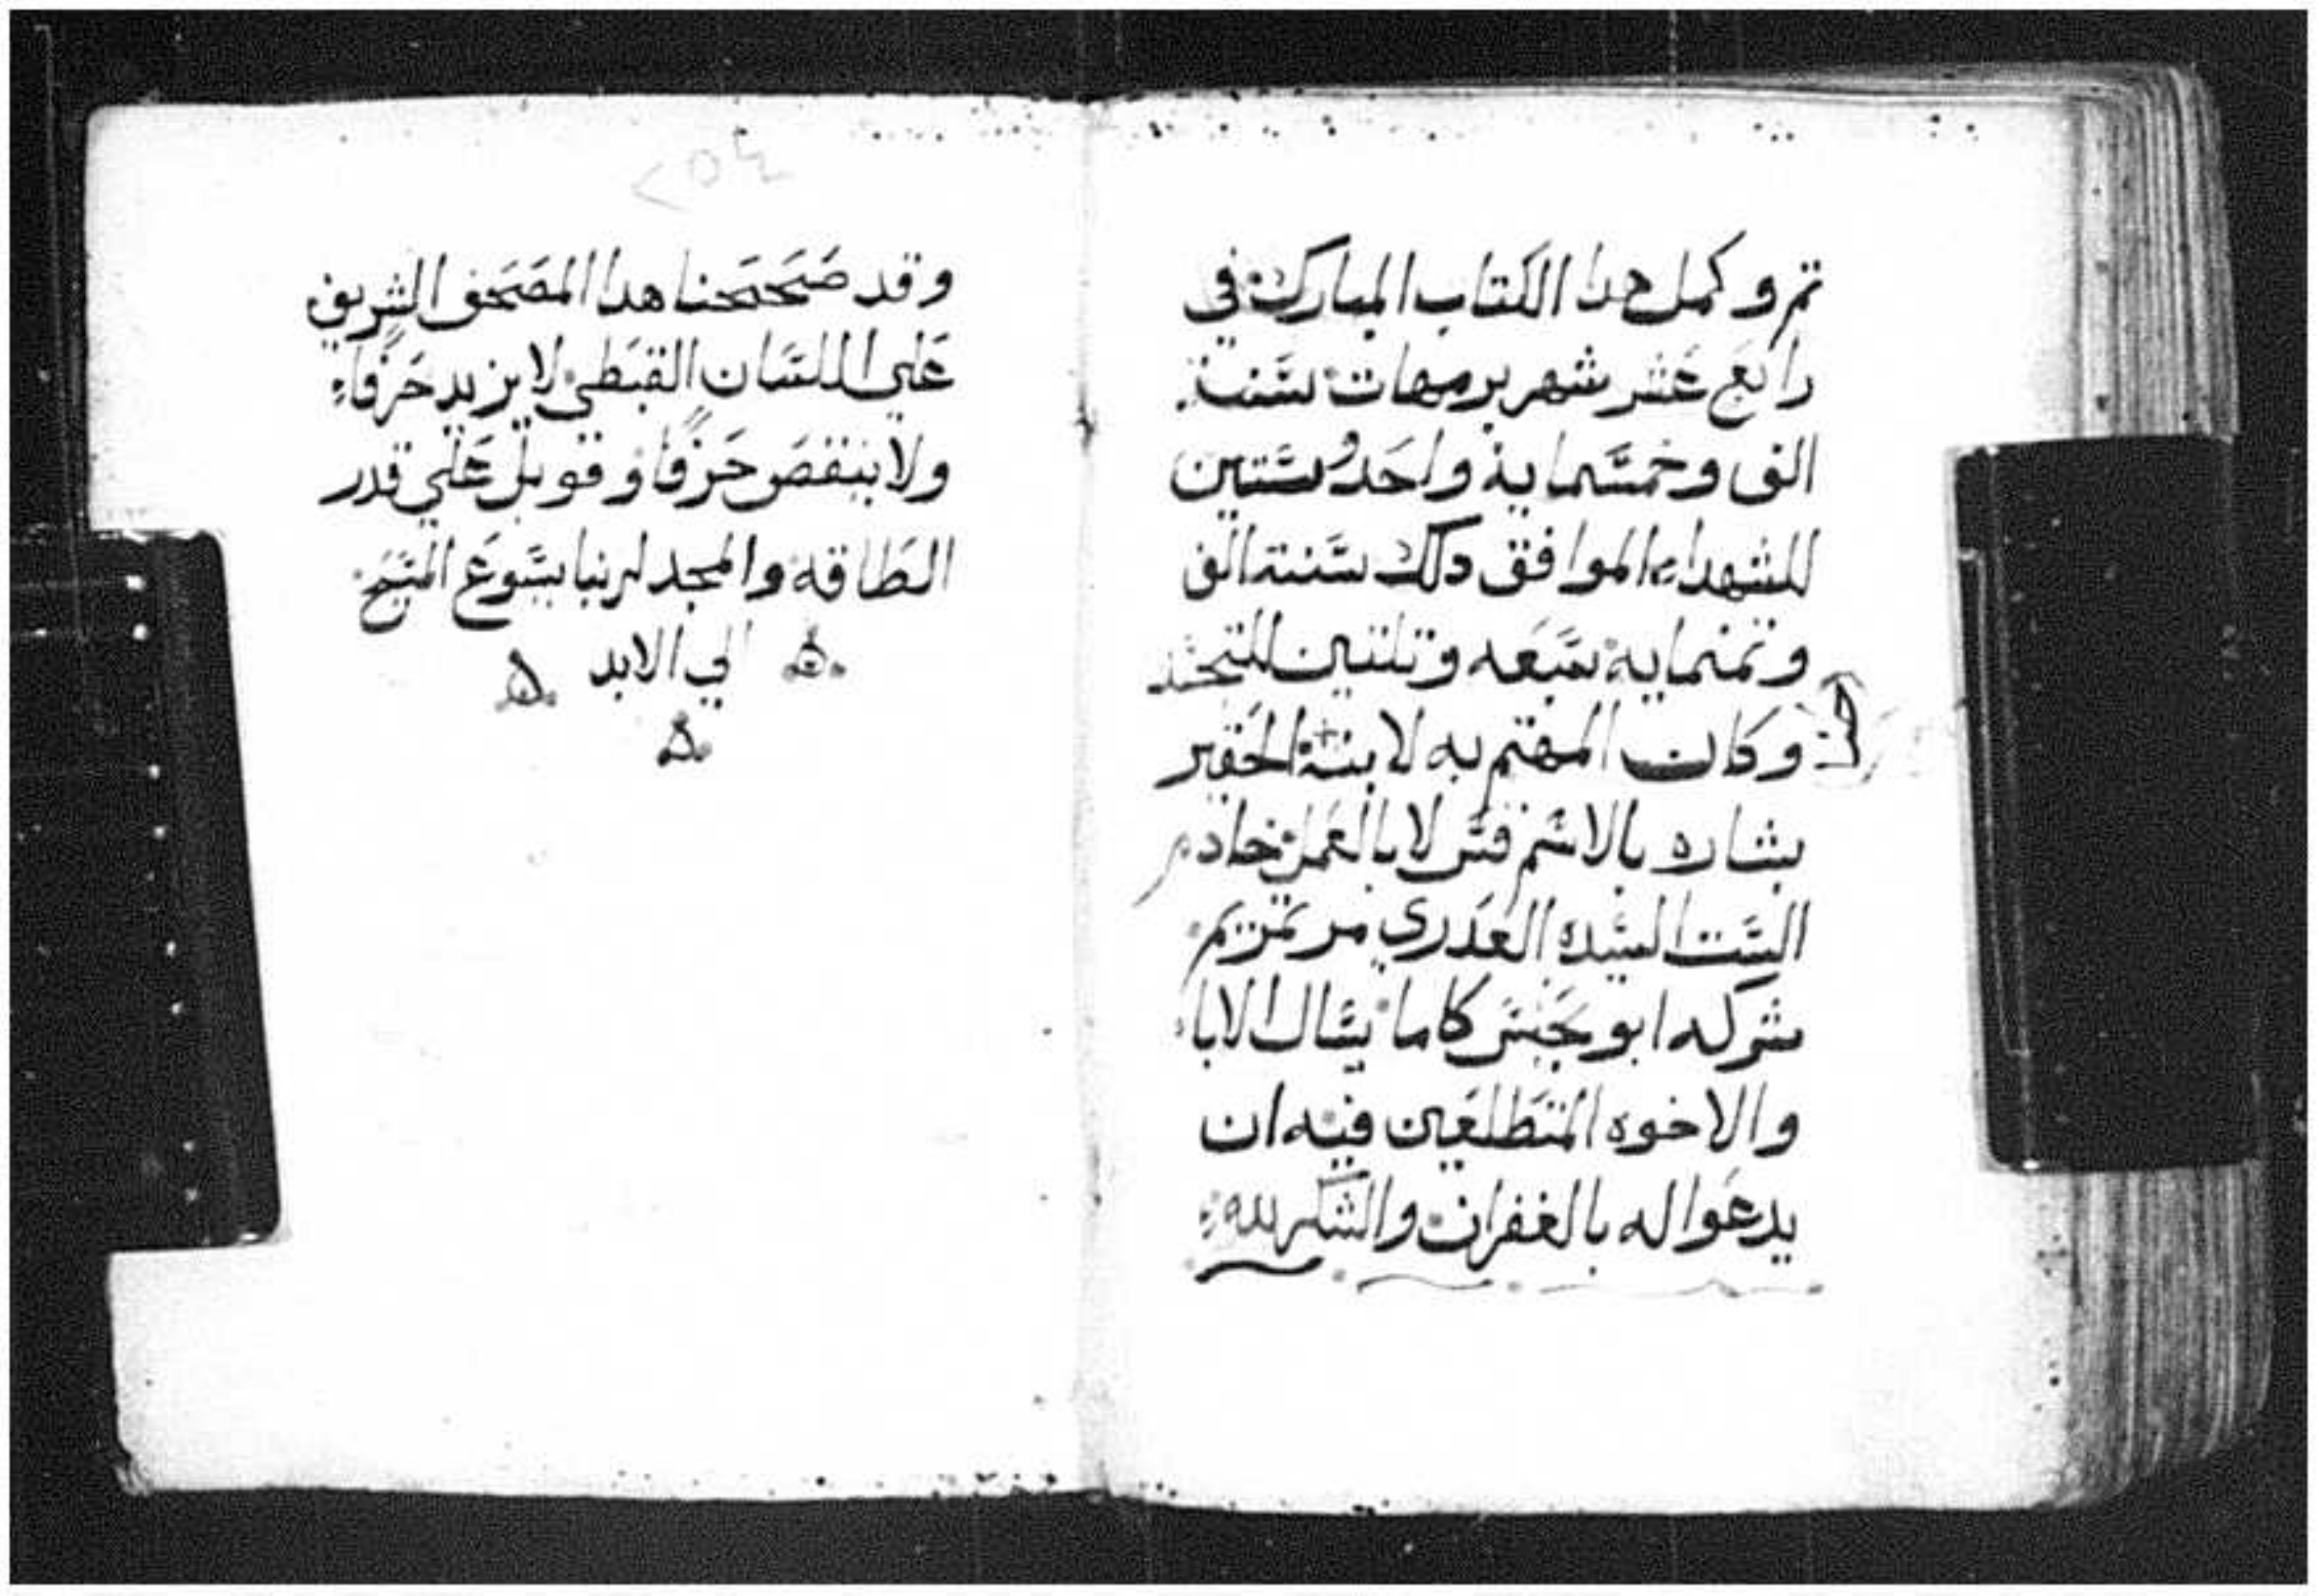 تم وكمل هدا الكتاب المبارك في
رابع عشر شهر برمهات سنة
الف وخمسماية واحد وستين
للشهداء الموافق دلك سنة الف
وتمنماية سبعه وتلتين للتجسد
وكان المهتم به لابنة الحقير
بشاره بالاسم قس لا بالعمل خادم
الست السيده العدري مرتمريم
ابو كاما يسال الابا
والاخوه المتطلعين فيه ان
يدعوا له بالغفران والشكر لله
٢٥٤
وقد صححنا هدا المصحف الشريف
علي اللسان القبطي لا يزيد حرفا
ولا ينقص حرفا وقوبل علي قدر
الطاقه والمجد لربنا يسوع المسيح
الي الابد